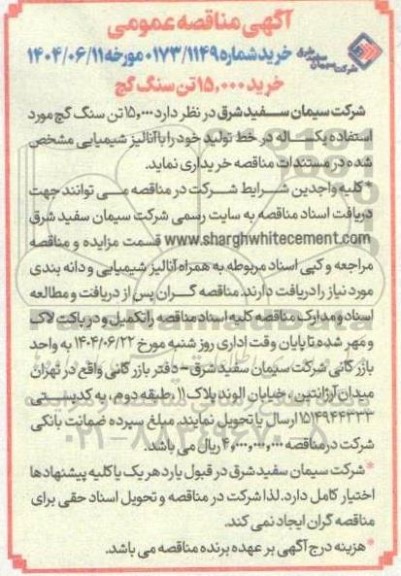 آگهی مناقصه عمومی
خرید شماره ۰۱۷۳/۱۱۴۹ مورخه ۱۴۰۴/۰۶/۱۱
خرید ۱۵,۰۰۰ تن سنگ گچ
شرکت سیمان سفید شرق
شرکت سیمان سفید شرق در نظر دارد ۱۵,۰۰۰ تن سنگ گچ مورد
استفاده یکساله در خط تولید خود را با آنالیز شیمیایی مشخص
شده در مستندات مناقصه خریداری نماید.
* کلیه واجدین شرایط شرکت در مناقصه می توانند جهت
دریافت اسناد مناقصه به سایت رسمی شرکت سیمان سفید شرق
www.sharghwhitecement.com قسمت مزایده و مناقصه
مراجعه و کپی اسناد مربوطه به همراه آنالیز شیمیایی و دانه بندی
مورد نیاز را دریافت دارند. مناقصه گران پس از دریافت و مطالعه
اسناد و مدارک مناقصه کلیه اسناد مناقصه را تکمیل و در پاکت لاک
و مهر شده تا پایان وقت اداری روز شنبه مورخ ۱۴۰۴/۰۶/۲۲ به واحد
بازرگانی شرکت سیمان سفید شرق - دفتر بازرگانی واقع در تهران
میدان آرژانتین، خیابان الوند پلاک ۱۱، طبقه دوم، به کدپستی
۱۵۱۴۹۴۴۳۳۳ ارسال یا تحویل نمایند. مبلغ سپرده ضمانت بانکی
شرکت در مناقصه ۴,۰۰۰,۰۰۰,۰۰۰ ریال می باشد.
* شرکت سیمان سفید شرق در قبول یا رد هر یک یا کلیه پیشنهادها
اختیار کامل دارد. لذا شرکت در مناقصه و تحویل اسناد حقی برای
مناقصه گران ایجاد نمی کند.
* هزینه درج آگهی بر عهده برنده مناقصه می باشد.